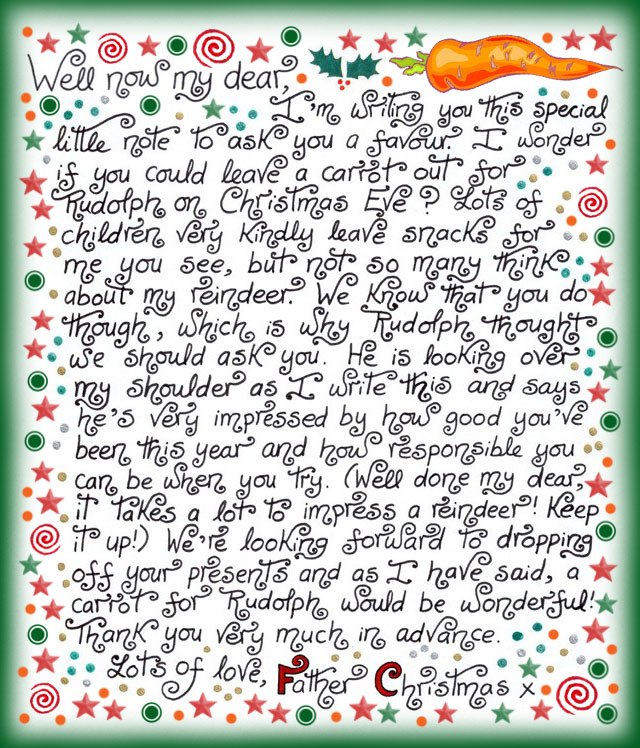 Well now my dear,
I'm writing you this special
little note to ask you a favour. I wonder
if you could leave a carrot out for
Rudolph on Christmas Eve? Lots of
children very kindly leave snacks for
me you see, but not so many think
about my reindeer. We know that you do
though, which is why Rudolph thought
we should ask you. He is looking over
my shoulder as I write this and says
he's very impressed by how good you've
been this year and how responsible you
can be when you try. (Well done my dear,
it takes a lot to impress a reindeer! Keep
it up!) We're looking forward to dropping
off your presents and as I have said, a
carrot for Rudolph would be wonderful!
Thank you very much in advance.
Lots of love, Father Christmas x